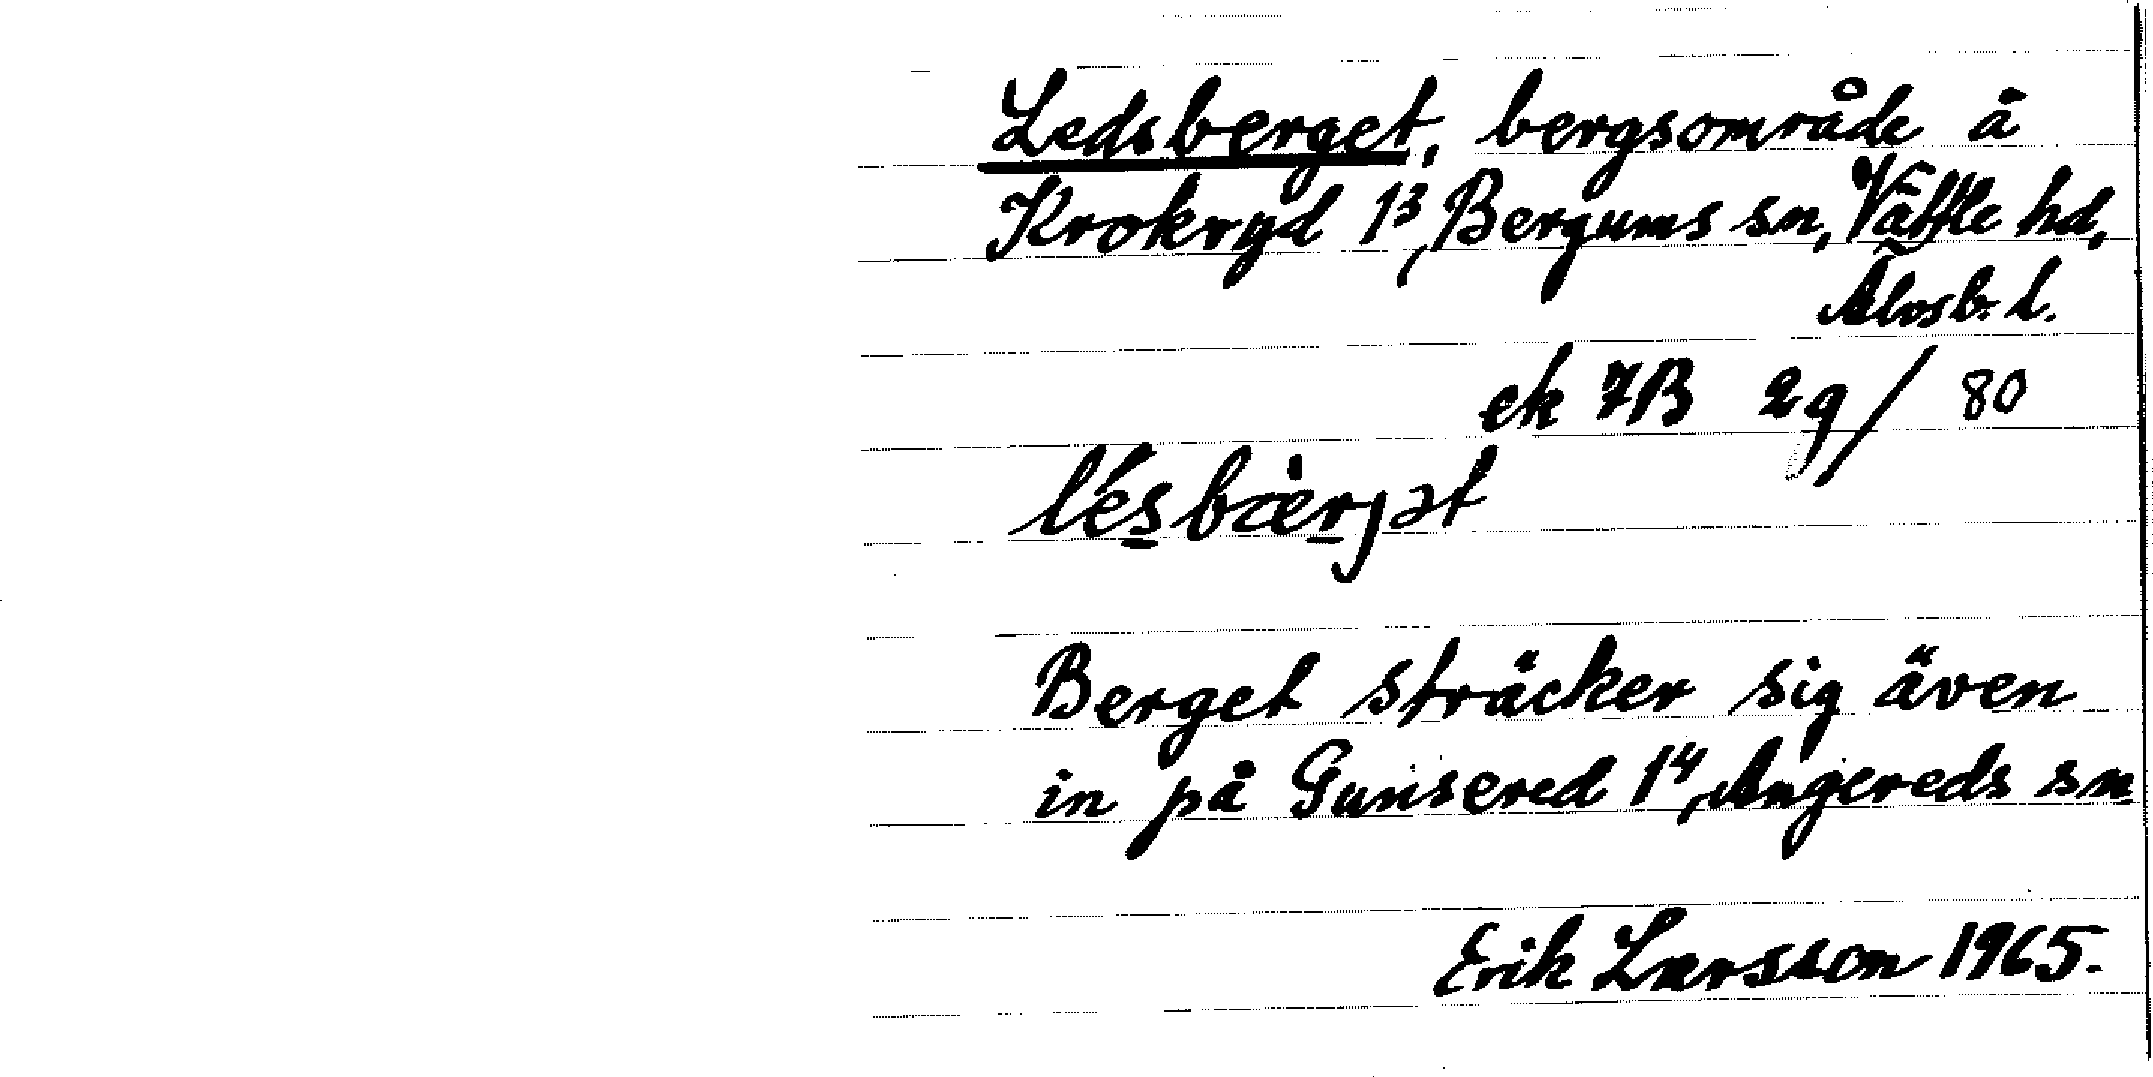 Ledsberget, bergsområde å
Krokryd 1³, Bergums sn, Vättle hd,
Älvsb. l.
ek 7B 2g/80
lésbæ̀rjət
Berget sträcker sig även
in på Gunsered 1⁴, Angereds sn
Erik Larsson 1965.